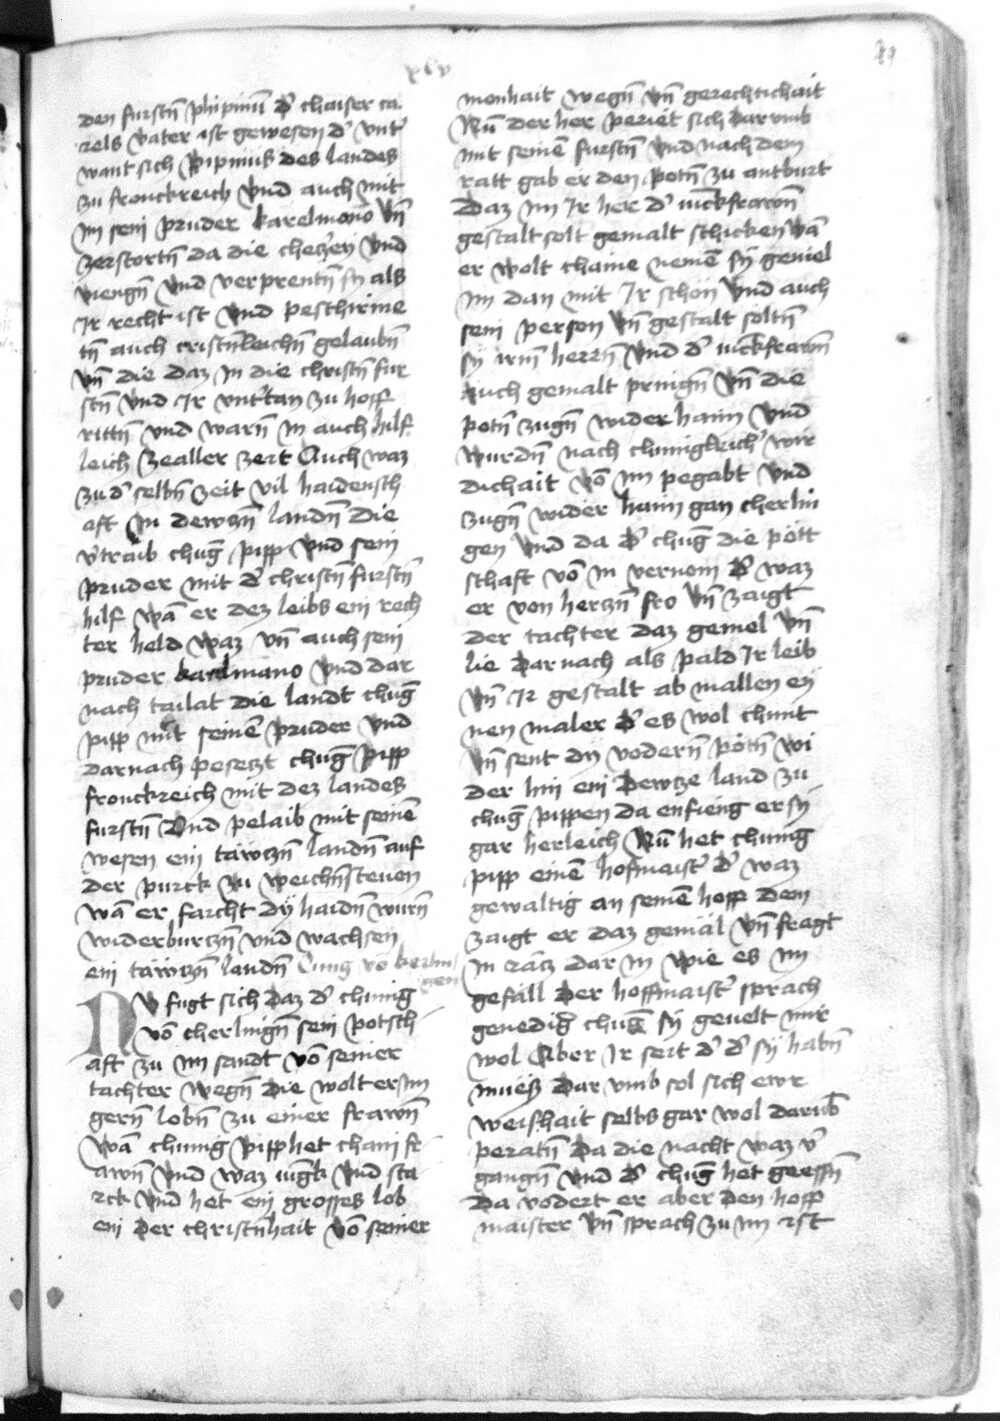 xlv
89
den furstn̄ phipinū d' chaiser ca
rels vater ist gewesen d' vnt'
want sich Pipinus des landes
zu fronckreich vnd auch mit
im sein pruder karelmono vn̄
zerstortn̄ da die checzey vnd
viengn̄ vnd verprentn̄ sy als
Ir recht ist vnd peschirme
tn̄ auch cristn̄leichn̄ gelaubn̄
vn̄ die daz In die christn̄ fur
stn̄ vnd Ir vnt'tan zu hoff
rittn̄ vnd warn̄ in auch hilf
leich zealler zert Auch waz
zu d' selbn̄ zeit vil haidensch
aft In dewczn̄ landn̄ die
v'traib chuḡ pipp vnd sein
pruder mit d' christn̄ furstn̄
hilf wā er dez leibs ein rech
ter held waz vn̄ auch sein
pruder karelmano vnd dar
nach tailat die landt chuḡ
pipp mit seinē pruder vnd
darnach peseczt chuḡ pipp
fronckreich mit dez landes
furstn̄ Vnd pelaib mit seinē
wesen ein täwczn̄ landn̄ auf
der purck zu weichn̄steuen
wā er farcht dy haidn̄ wurn̄
widerburczn̄ vnd wachsen
ein täwczn̄ landn̄ Cung vō kerlin
gen
Nv fugt sich daz d' chunig
vō cherlingn̄ sein potsch
aft zu im sandt vō seiner
tachter wegn̄ die wolt er im
gern̄ lobn̄ zu einer frawn̄
wā chunig pipp het chain fr
awn̄ vnd waz iugk vnd sta
rck vnd het ein grosses lob
ein der christn̄hait vō seiner
monhait wegn̄ vn̄ gerechtichait
Nu der her periet sich dar vmb
mit seinē furstn̄ vnd nach dem
ratt gab er den potn̄ zu antburt
daz im Ir her d' iuckfrawn̄
gestalt solt gemalt schicken wā
er wolt chaine nemē sy geuiel
im dan mit Ir schon vnd auch
sein person vn̄ gestalt soltn̄
sy irm̄ herrn̄ vnd d' iuckfrawn̄
auch gemalt pringn̄ vn̄ die
potn̄ zugn̄ wider haim vnd
wurdn̄ nach chunigleich' wir
dichait vō im pegabt vnd
zugn̄ wider haim gan cherlin
gen vnd da d' chuḡ die pott
schaft vō in vernom d' waz
er von herczn̄ fro vn̄ zaigt
der tachter daz gemel vn̄
lie dar nach als pald Ir leib
vn̄ Ir gestalt ab mallen ey
nen maler d' es wol chunt
vn̄ sent dy vodern̄ potn̄ wi
der hin ein dewcze land zu
chuḡ pippen da enfieng er sy
gar herleich Nu het chunig
pipp einē hofmaist' d' waz
gewaltig an seinē hoff dem
zaigt er daz gemäl vn̄ fragt
in racz dar in wie es im
gefall der hoffmaist' sprach
genedig' chuḡ sy geuelt mir
wol Aber Ir seit d' d' sy habn̄
muesz dar vmb sol sich ewr
weishait selbs gar wol darub̄
peratn̄ Da die nacht waz v'
gangn̄ vnd d' chuḡ het geessn̄
da vodert er aber den hoff
maister vn̄ sprach zu im ist